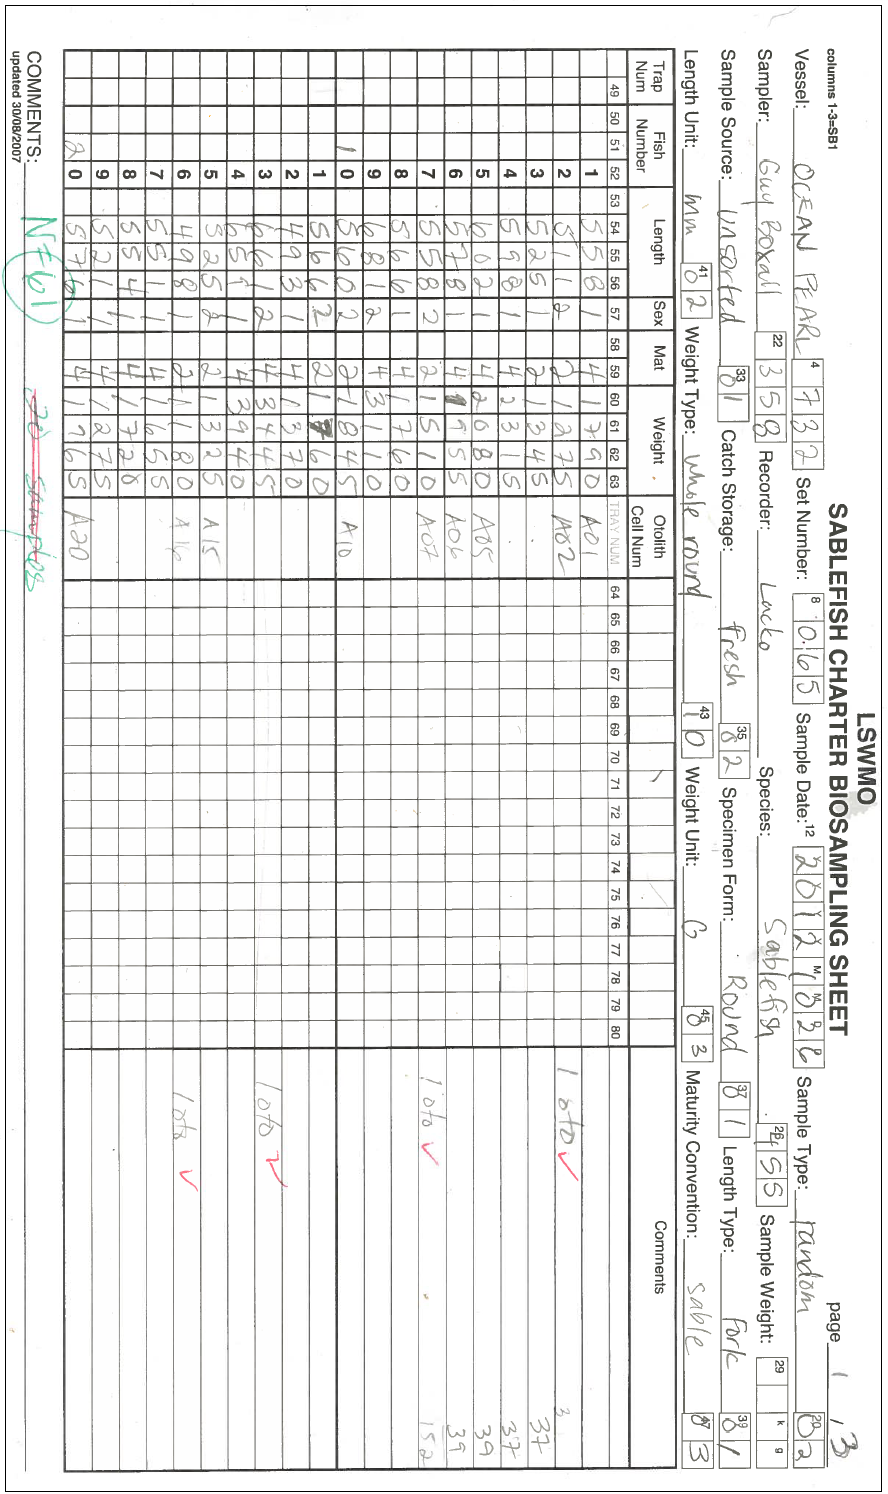 LSWMO
SABLEFISH CHARTER BIOSAMPLING SHEET
columns 1-3=SB1 page 1 / 3
Vessel: OCEAN PEARL 4 732 Set Number: 8 065 Sample Date: 12 20121026 Sample Type: random 20 02
Sampler: Guy Boxall 22 358 Recorder: Lacko Species: Sablefish 26 455 Sample Weight: 29 k g
Sample Source: unsorted 33 01 Catch Storage: fresh 35 02 Specimen Form: Round 37 01 Length Type: Fork 39 01
Length Unit: mm 41 02 Weight Type: whole round 43 10 Weight Unit: G 45 03 Maturity Convention: sable 47 03
Trap Num Fish Number Length Sex Mat Weight Otolith Cell Num Comments
49 50 51 52 53 54 55 56 57 58 59 60 61 62 63 TRAY NUM 64 65 66 67 68 69 70 71 72 73 74 75 76 77 78 79 80
1 558 1 4 1790 A01
2 511 2 2 1275 A02 1 oto ✓ 3
3 525 1 2 1345 37
4 598 1 4 2315 37
5 602 1 4 2080 A05 39
6 578 1 4 1955 A06 39
7 558 2 2 1510 A07 1 oto ✓ 152
8 566 1 4 1760
9 681 2 4 3110
10 560 2 2 1845 A10
1 566 2 2 1760
2 493 1 4 1370
3 661 2 4 3445 1 oto ✓
4 651 1 4 3940
5 525 2 2 1325 A15
6 498 1 2 1180 A16 1 oto ✓
7 551 1 4 1655
8 554 1 4 1720
9 521 1 4 1275
20 576 1 4 1965 A20
COMMENTS: N=61 20 samples
updated 30/08/2007